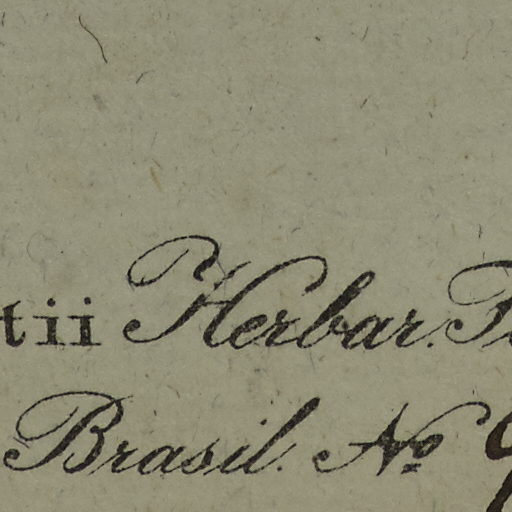 tii Herbar. F
Brasil. No